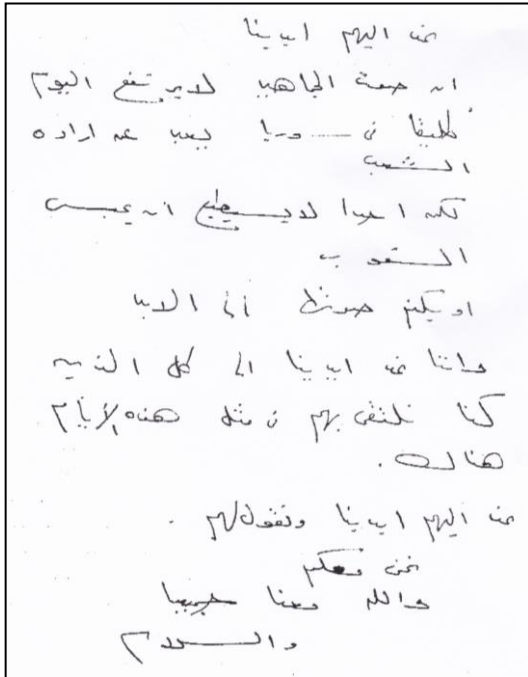 نمد اليهم ايدينا
ان صوت الجماهير لا يرتفع اليوم
طليقا في سوريا يعبر عن ارادة
الشعب
لكن احدا لا يستطيع ان يحبس
الشعوب
او يكتم صوتها الى الابد
واننا نمد ايدينا الى كل الذين
كنا نلتقي بهم في مثل هذه الأيام
هناك.
نمد اليهم ايدينا ونقول لهم .
نحن معكم
والله معنا جميعا
والسلام